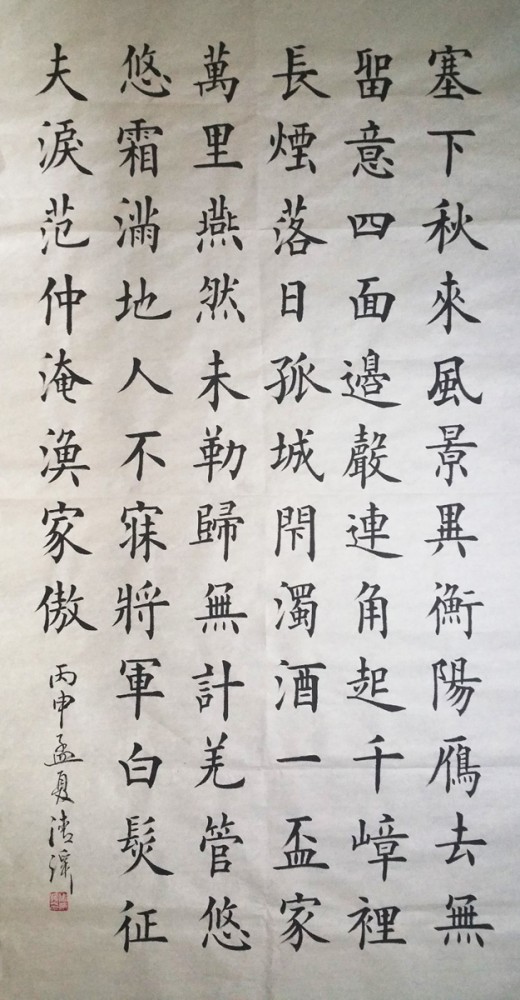 塞下秋來風景異衡陽雁去無
留意四面邊聲連角起千嶂裡
長煙落日孤城閇濁酒一盃家
萬里燕然未勒歸無計羌管悠
悠霜滿地人不寐將軍白髮征
夫淚范仲淹漁家傲
丙申孟夏